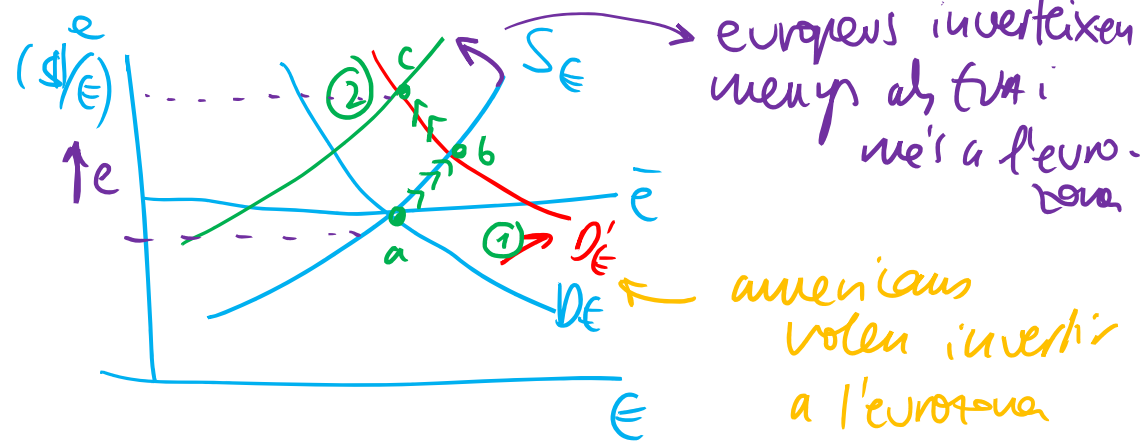 e
($/€)
↑e
②
c
b
a
①
S€
ē
D'€
D€
€
europeus inverteixen
menys als EUA i
més a l'euro-
zona
americans
volen invertir
a l'eurozona